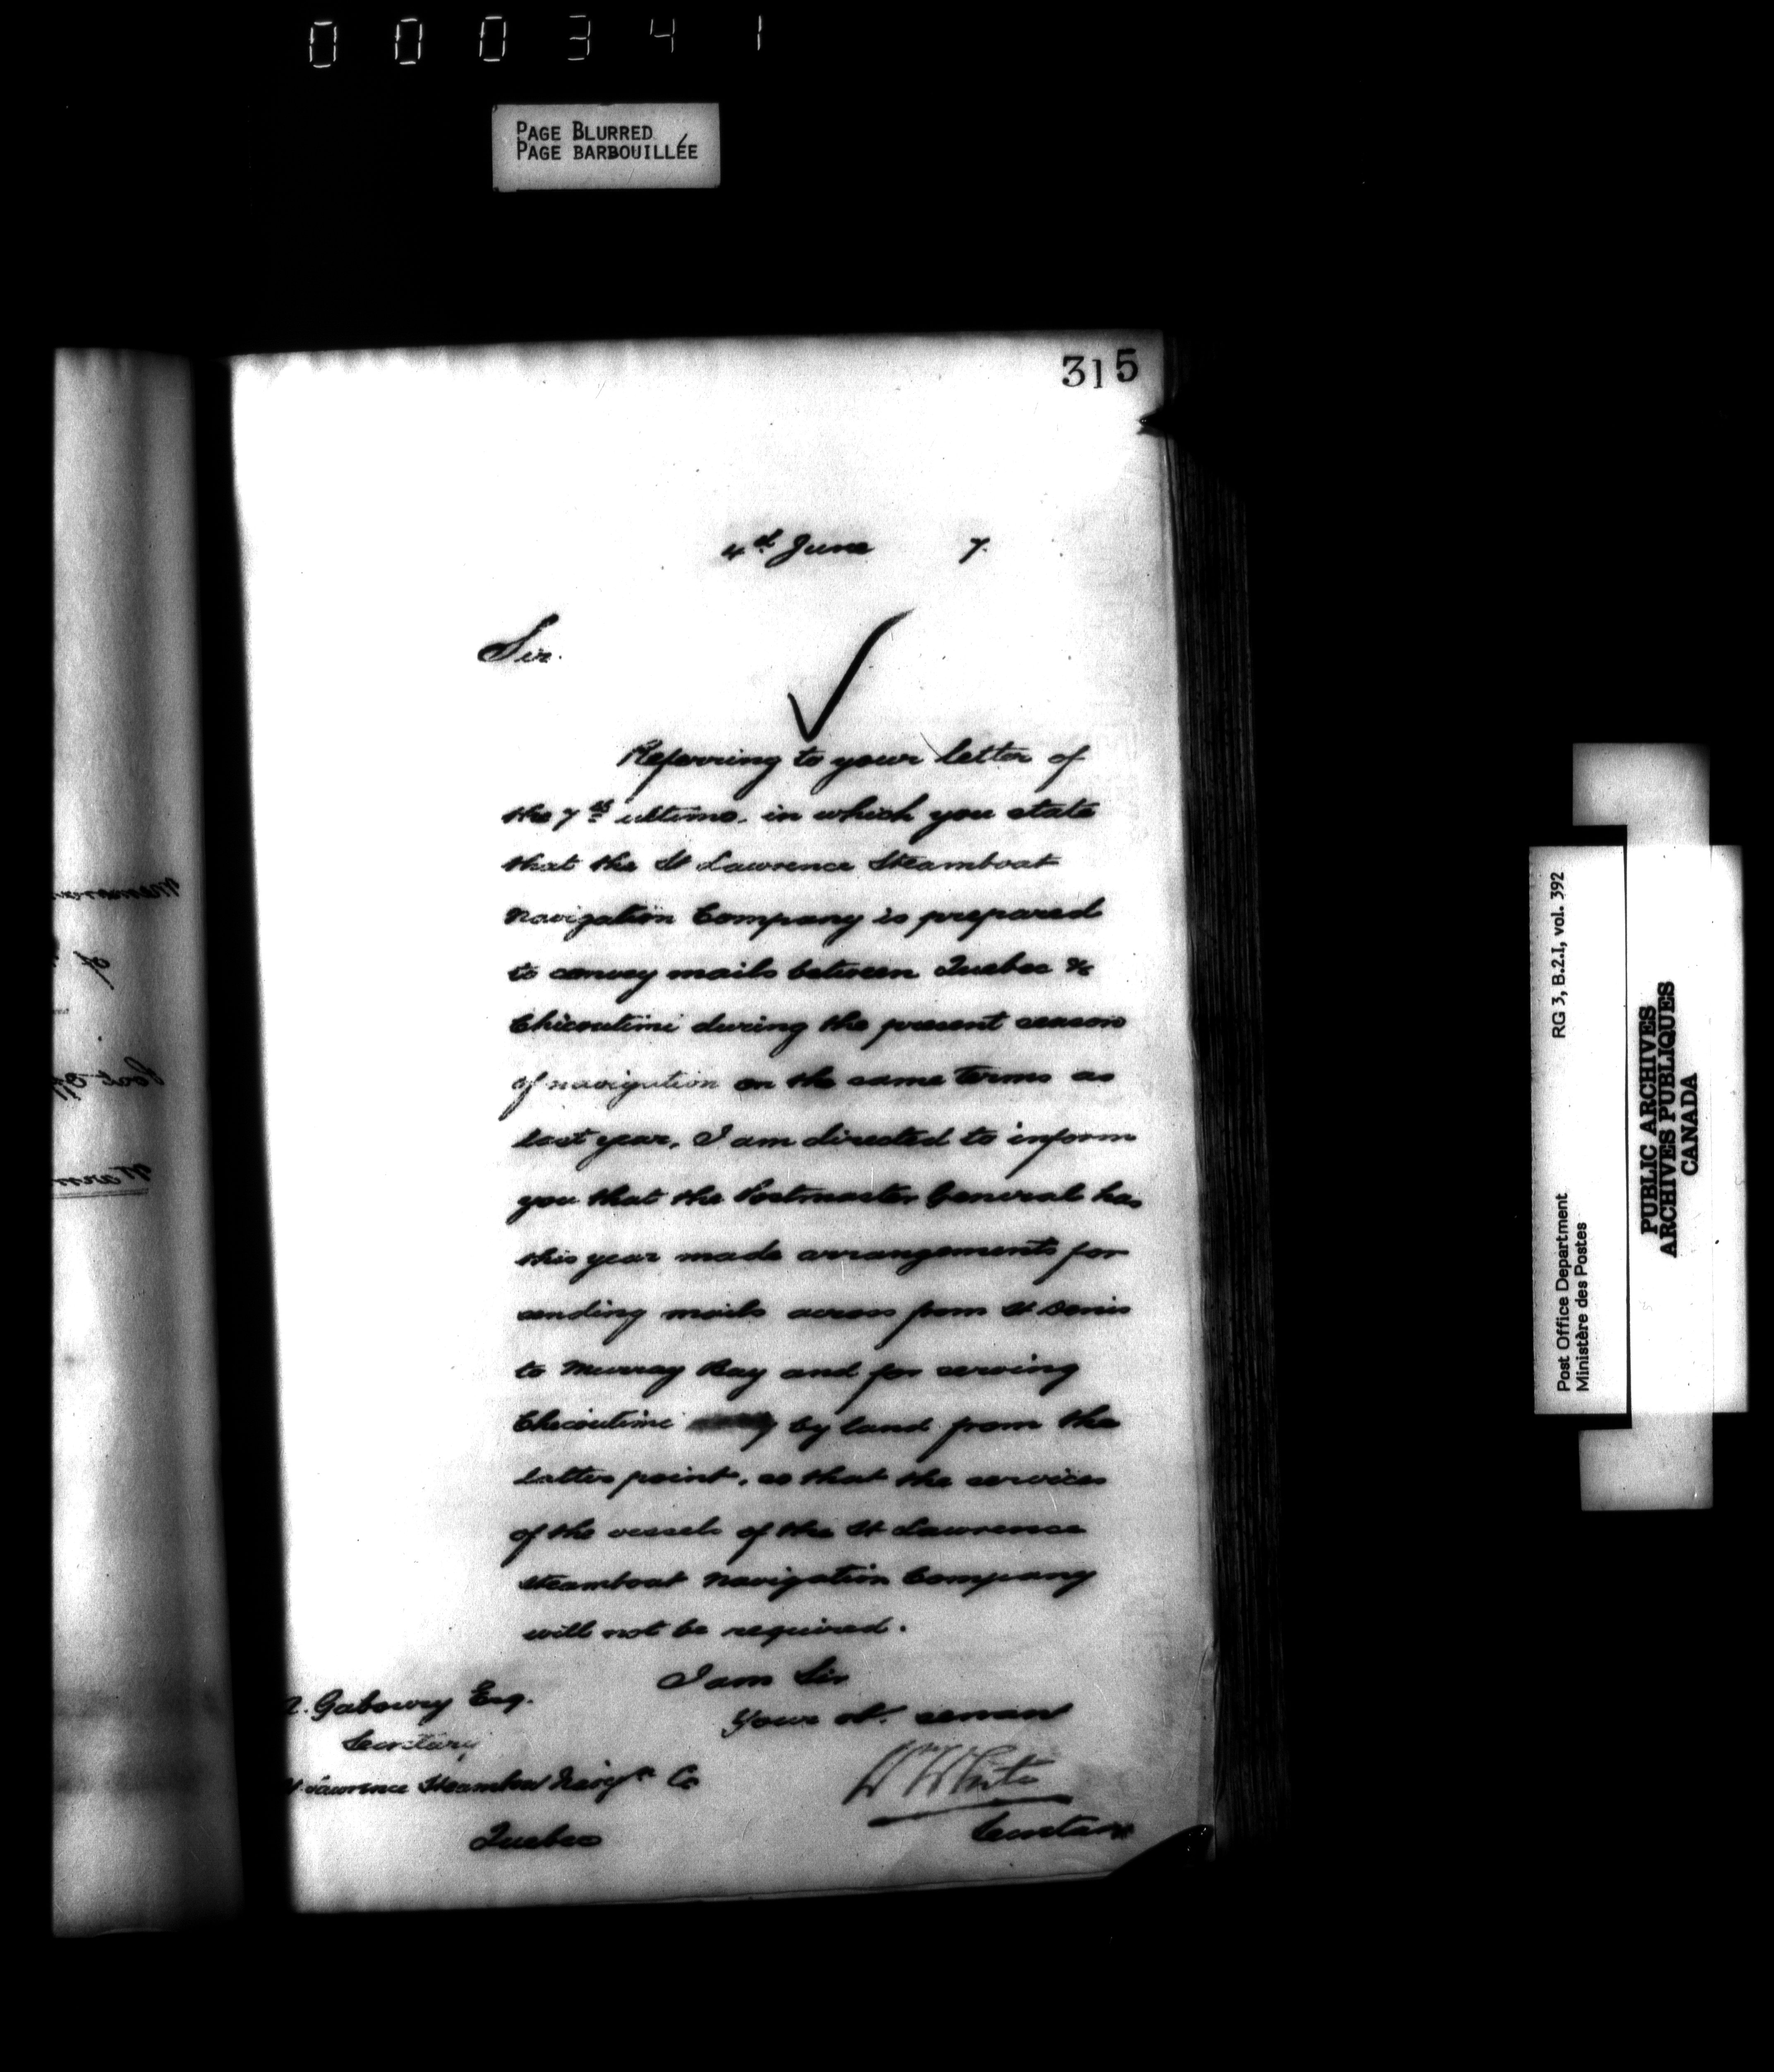 000341
PAGE BLURRED
PAGE BARBOUILLÉE
315
4th June 7.
Sir.
Referring to your letter of
the 7th ultimo. in which you state
that the St Lawrence Steamboat
Navigation Company is prepared
to convey mails between Quebec &
Chicoutimi during the present season
of navigation on the same terms as
last year, I am directed to inform
you that the Postmaster General has
this year made arrangements for
sending mails across from St Denis
to Murray Bay and for serving
Chicoutimi by land from the
latter point, so that the services
of the vessels of the St Lawrence
Steamboat Navigation Company
will not be required.
I am Sir
Your ob. servant
A. Gaboury Esq.
Secretary
St. Lawrence Steamboat Navign Co
Quebec
W White
Secretary
RG 3, B.2.1, vol. 392
Post Office Department
Ministère des Postes
PUBLIC ARCHIVES
ARCHIVES PUBLIQUES
CANADA